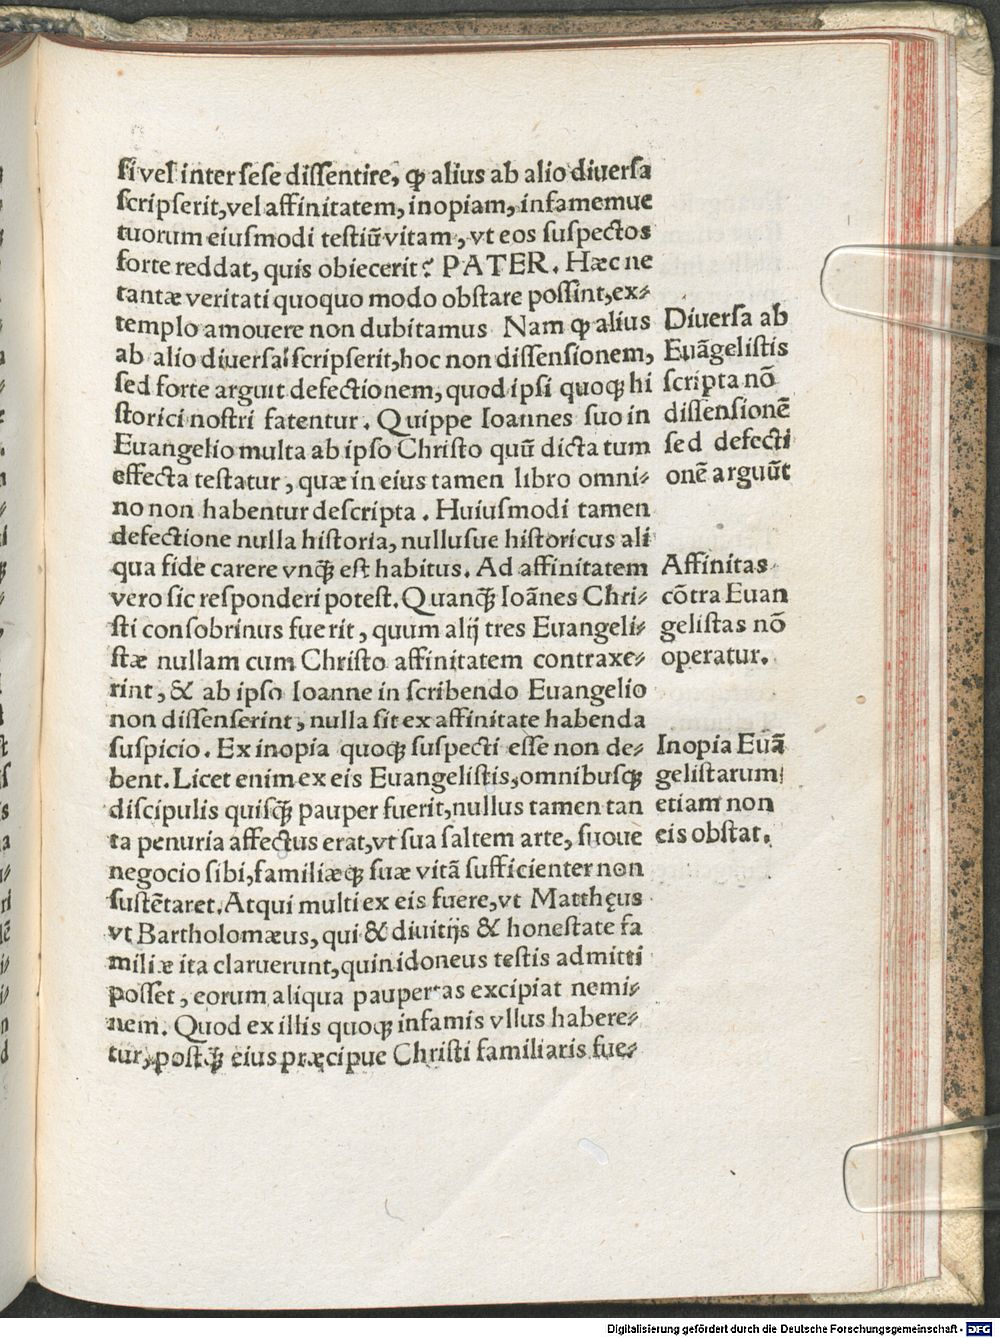 si vel inter sese dissentire, ꝙ alius ab alio diuersa
scripserit, vel affinitatem, inopiam, infamemue
tuorum eiusmodi testiũ vitam, vt eos suspectos
forte reddat, quis obiecerit? PATER. Hæc ne
tantæ veritati quoquo modo obstare possint, ex⸗
templo amouere non dubitamus Nam ꝙ alius
ab alio diuersa scripserit, hoc non dissensionem,
sed forte arguit defectionem, quod ipsi quoqꝫ hi
storici nostri fatentur. Quippe Ioannes suo in
Euangelio multa ab ipso Christo quũ dicta tum
effecta testatur, quæ in eius tamen libro omni⸗
no non habentur descripta. Huiusmodi tamen
defectione nulla historia, nullusue historicus ali
qua fide carere vnꝙ̃ est habitus. Ad affinitatem
vero sic responderi potest. Quanꝙ̃ Ioãnes Chri⸗
sti consobrinus fuerit, quum alij tres Euangeli⸗
stæ nullam cum Christo affinitatem contraxe⸗
rint, & ab ipso Ioanne in scribendo Euangelio
non dissenserint, nulla sit ex affinitate habenda
suspicio. Ex inopia quoqꝫ suspecti esse non de⸗
bent. Licet enim ex eis Euangelistis, omnibusqꝫ
discipulis quisꝙ̃ pauper fuerit, nullus tamen tan
ta penuria affectus erat, vt sua saltem arte, suoue
negocio sibi, familiæqꝫ suæ vitã sufficienter non
sustẽtaret. Atqui multi ex eis fuere, vt Matthęus
vt Bartholomæus, qui & diuitijs & honestate fa
miliæ ita claruerunt, quin idoneus testis admitti
posset, eorum aliqua paupertas excipiat nemi⸗
nem. Quod ex illis quoqꝫ infamis vllus habere⸗
tur, postꝙ̃ eius præcipue Christi familiaris fue⸗
Diuersa ab
Euãgelistis
scripta nõ
dissensionẽ
sed defecti
onẽ arguũt
Affinitas
cõtra Euan
gelistas nõ
operatur.
Inopia Euã
gelistarum
etiam non
eis obstat.
Digitalisierung gefördert durch die Deutsche Forschungsgemeinschaft - DFG